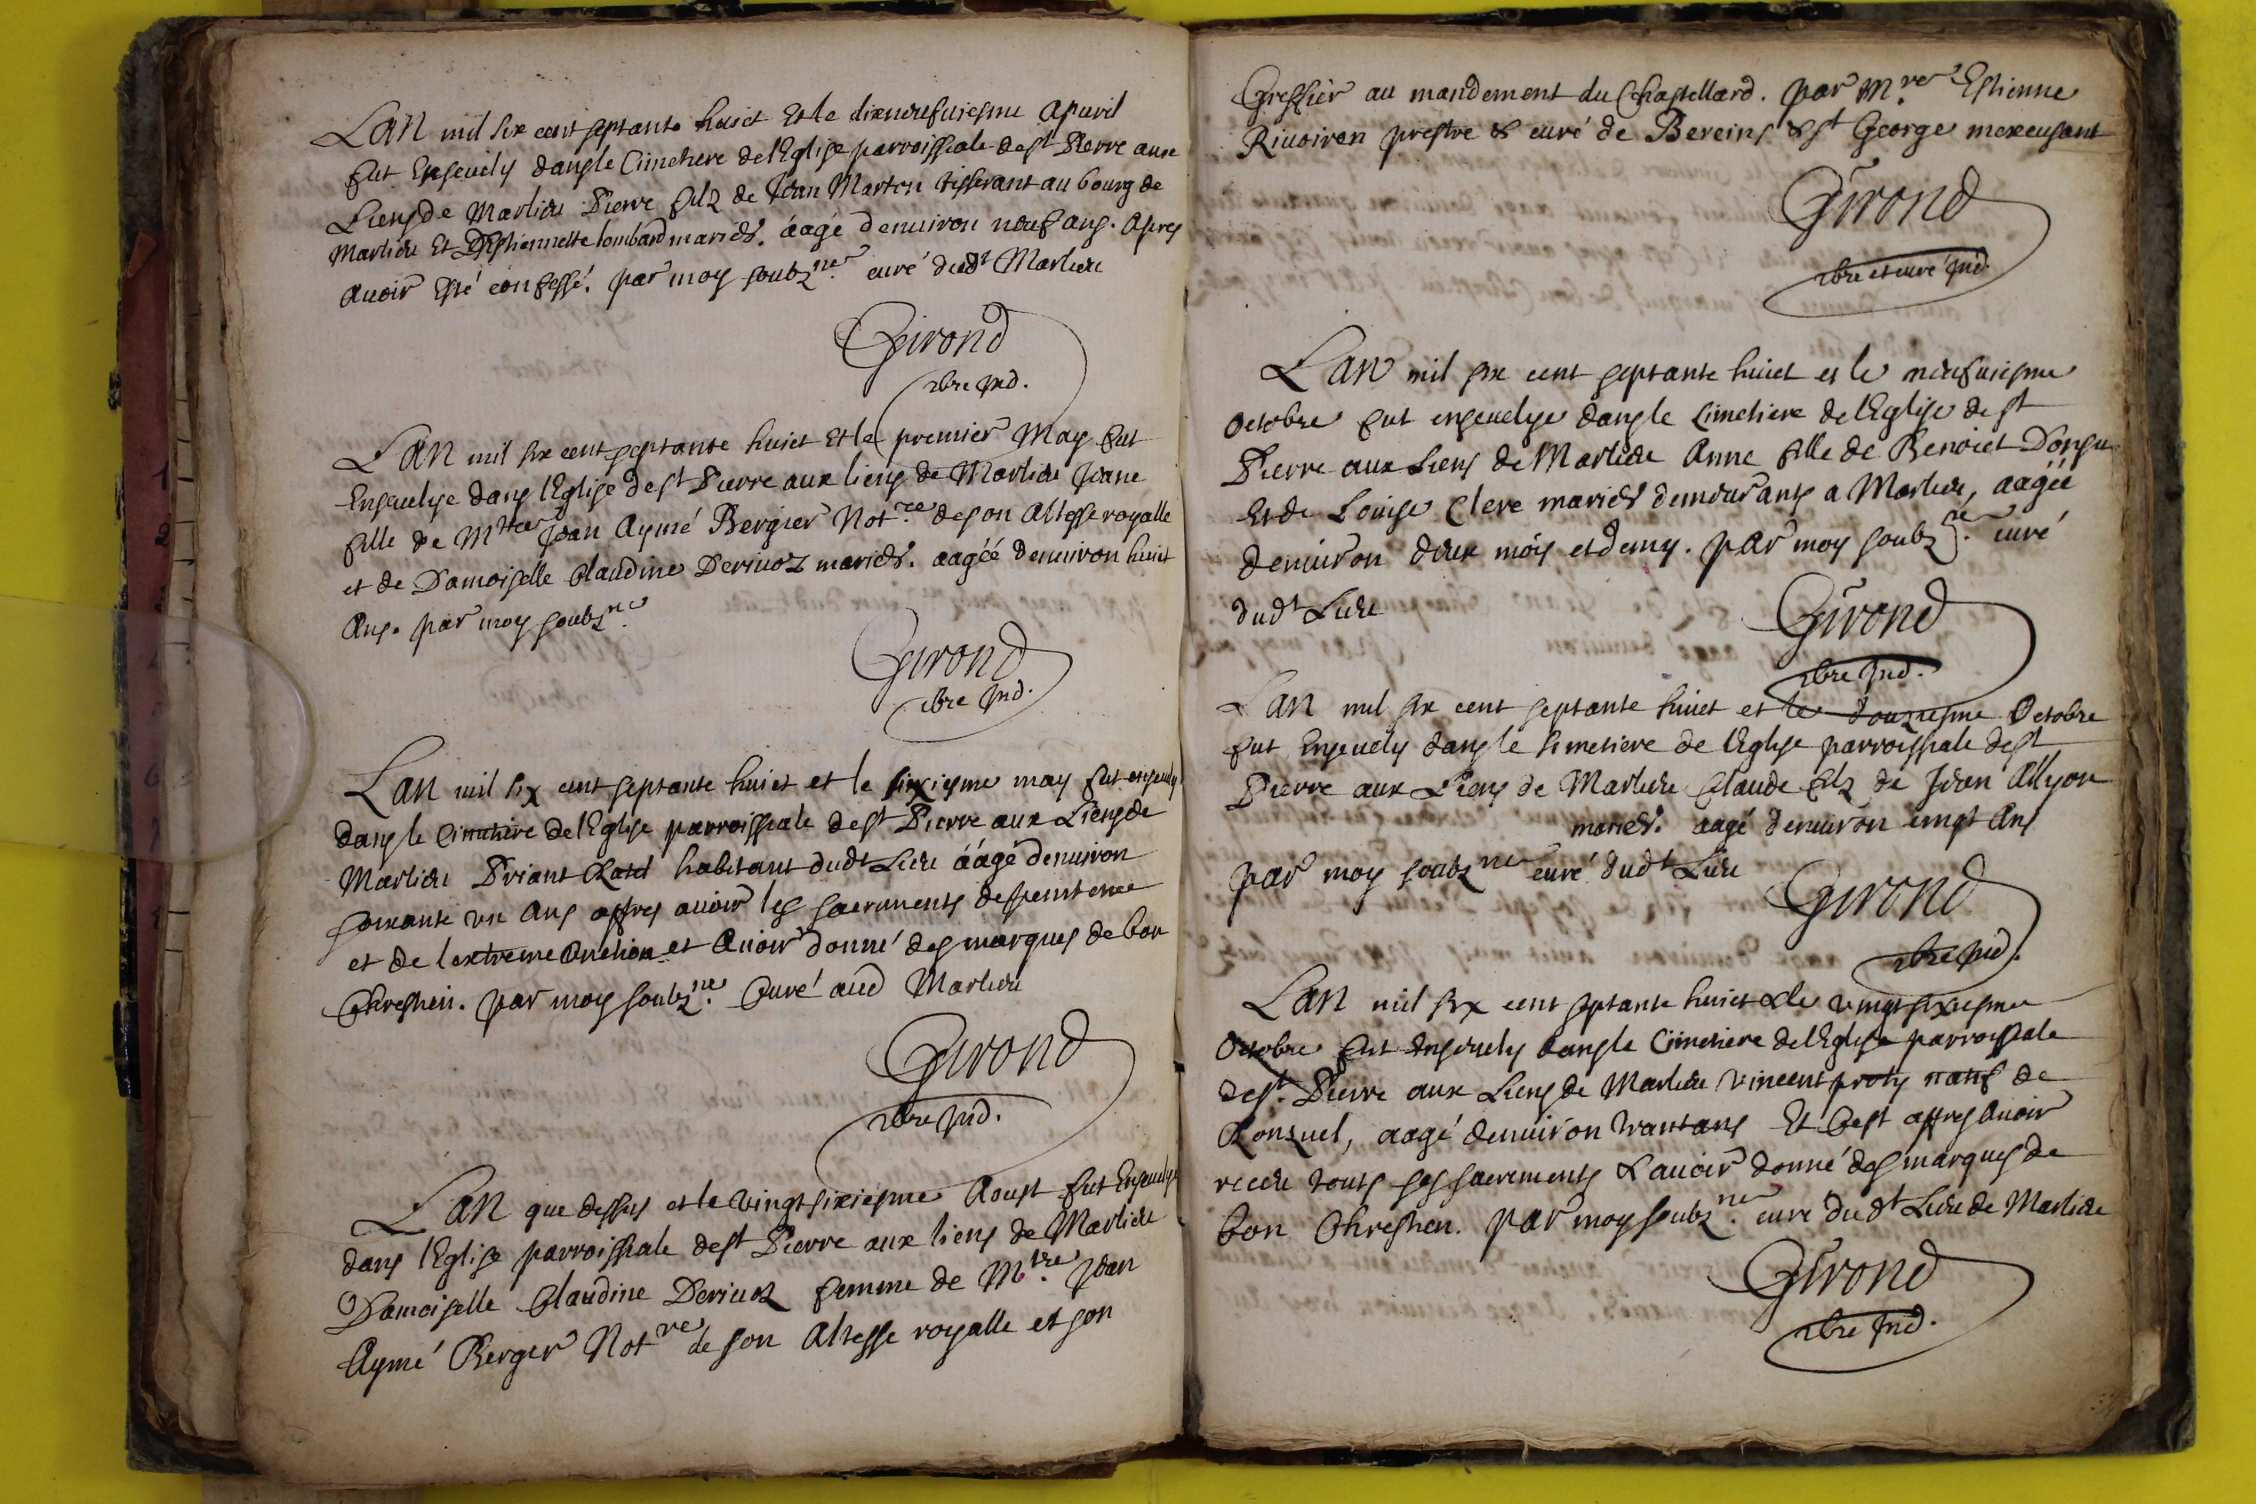 Lan mil six cent septante huict Et le dixneufuiesme Apuril
fut Enseuely dans le Cimetiere de l'Eglise parroissiale de st Pierre aux
Liens de Marlieu Pierre filz de Jean Marton tisserant au bourg de
Marlieu Et D'Estiennette lombard mariés. áagé denuiron neuf ans. Apres
Auoir Esté confessé. par moy soubz.ne curé dudt Marlieu
Girond
pbre Ind.
Lan mil six cent septante huict Et le premier May fut
Enseuelye dans l'Eglise de st Pierre aux liens de Marlieu Jeane
fille de Mtre Jean Aymé Bergier Not.re de son Altesse royalle
et de Damoiselle Claudine Deriuoz mariés. aagéé denuiron huict
Ans. par moy soubz.ne
Girond
pbre Ind.
Lan mil six cent septante huict et le sixiesme may fut enseuely
dans le Cimetiere de l'Eglise parroissiale de st Pierre aux Liens de
Marlieu Priant habitant dudt Lieu áagé denuiron
soixante un Ans appres auoir les sacrements de penitence
et de lextreme Onction et Auoir donné des marques de bon
Chrestien. par moy soubz.ne Curé aud Marlieu
Girond
pbre Ind.
Lan que dessus et le vingtsixiesme Aoust fut Enseuelye
dans l'Eglise parroissiale de st Pierre aux liens de Marlieu
Damoiselle Claudine Deriuoz femme de M.tre Jean
Aymé Berger Notre de son Altesse royalle et son
Greffier au mandement du Chastellard. par M.re Estienne
Riuoiron prestre & curé de Bereins & st George mexcusant
Girond
pbre et curé Ind.
Lan mil six cent septante huict et le neufuiesme
Octobre fut enseuelye dans le Cimetiere de l'Eglise de st
Pierre aux Liens de Marlieu Anne fille de Benoict
Et de Louise Clere mariés demeurants a Marlieu, aagéé
denuiron deux moys et demy. par moy soubz.ne curé
dudt Lieu
Girond
pbre Ind.
Lan mil six cent septante huict et le douziesme Octobre
fut Enseuely dans le Cimetiere de l'Eglise parroissiale de st
Pierre aux Liens de Marlieu Claude filz de Jean Allyon
mariés. aagé denuiron uingt Ans
par moy soubzne curé dudt Lieu
Girond
pbre Ind.
Lan mil six cent septante huict & le vingtsixiesme
Octobre fut Enseuely dans le Cimetiere de l'Eglise parroissiale
de st. Pierre aux Liens de Marlieu Vincent natif de
Ronzuel, aagé denuiron trantans Et C'est appres Auoir
receu touts ses sacrements & auoir donné des marques de
bon Chrestien. par moy soubz.ne curé dudt Lieu de Marlieu
Girond
pbre Ind.